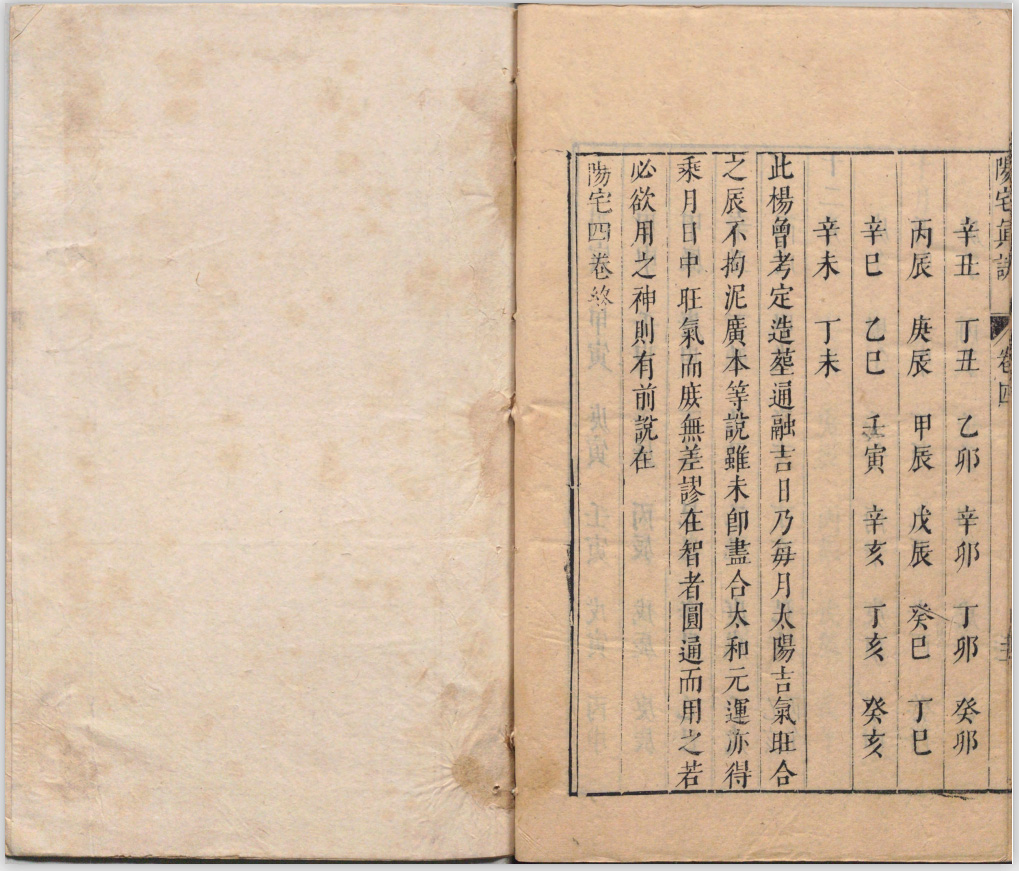 陽宅彙說　卷四
辛丑　丁丑　乙卯　辛卯　丁卯　癸卯
丙辰　庚辰　甲辰　戊辰　癸巳　丁巳
辛巳　乙巳　壬寅　辛亥　丁亥　癸亥
辛未　丁未
此楊曾考定造塟通融吉日乃每月太陽吉氣旺合
之辰不拘泥廣本等說雖未卽盡合太和元運亦得
乘月日中旺氣而庶無差謬在智者圓通而用之若
必欲用之神則有前說在
陽宅四卷終